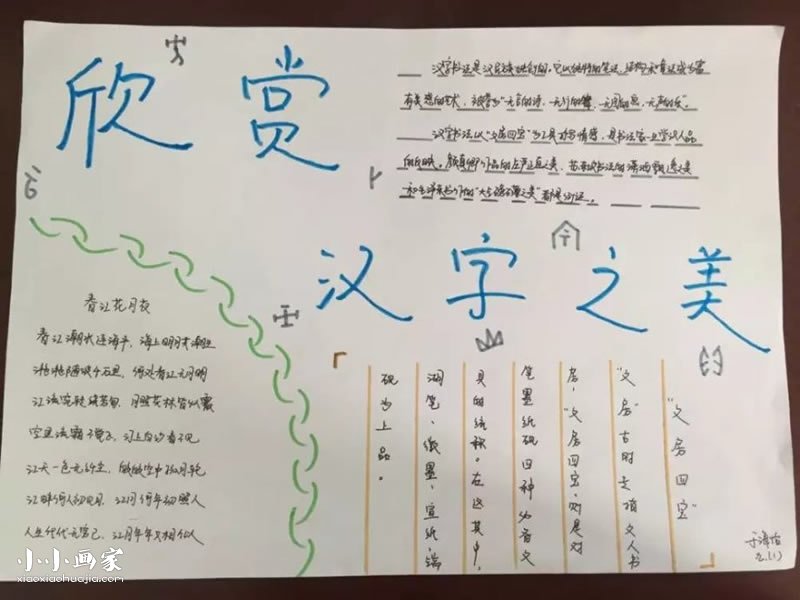 欣赏
汉字书法是汉民族独创的。它以独特的笔法、结构和章法成为富
有美感的艺术，被誉为"无言的诗，无行的舞，无图的画，无声的乐"。
汉字书法以"文房四宝"为工具抒写情感，学识人品
的反映。颜真卿作品的庄严正直之美、苏东坡书法的潇洒飘逸之美
和毛泽东书作的"大气磅礴之美"都是例证。
汉字之美
春江花月夜
春江潮水连海平，海上明月共潮生
滟滟随波千万里，何处春江无月明
江流宛转绕芳甸，月照花林皆似霰
空里流霜不觉飞，汀上白沙看不见
江天一色无纤尘，皎皎空中孤月轮
江畔何人初见月，江月何年初照人
人生代代无穷已，江月年年只相似
"文房四宝"
"文房"古时是指文人书
房，"文房四宝，则是对
笔墨纸砚四种文
具的统称。在这其中，
湖笔、徽墨、宣纸、端
砚为上品。
2.(1)
小小画家
xiaoxiaohuajia.com